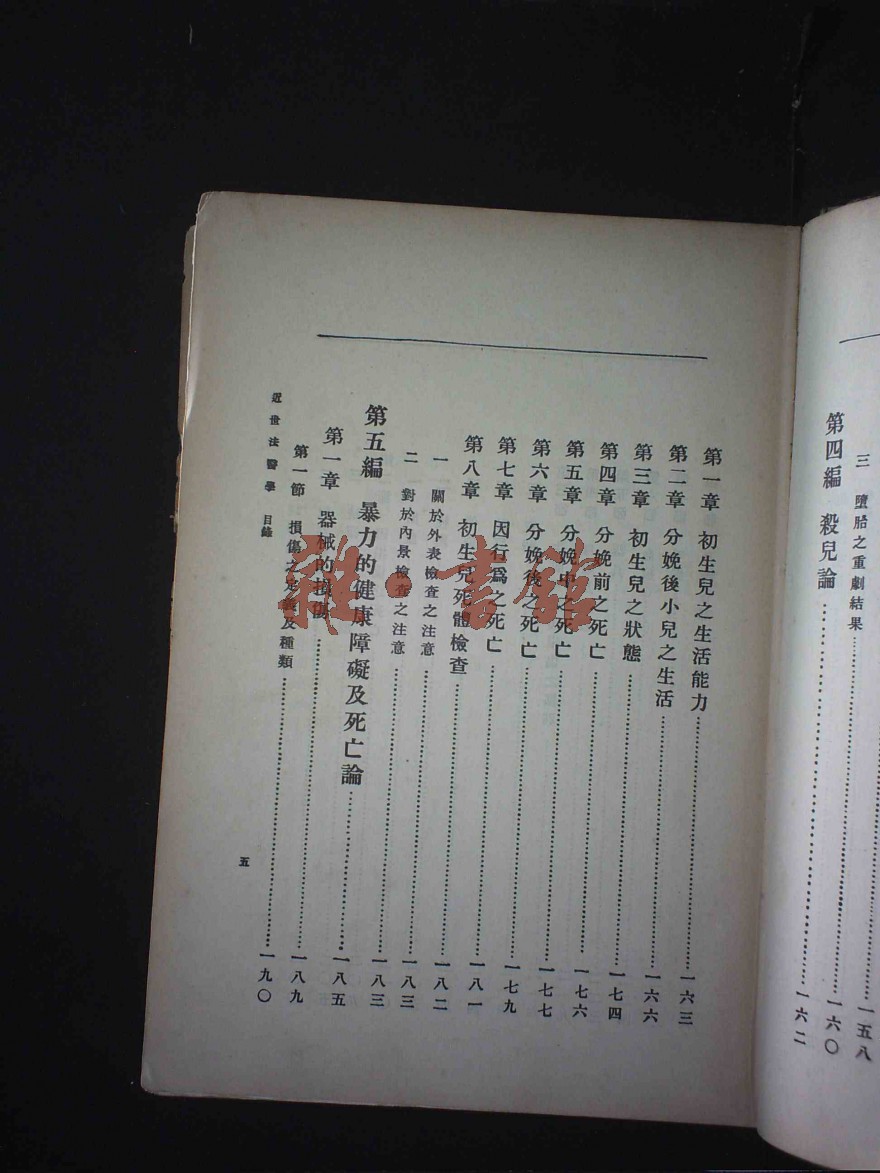 一五八
三 墮胎之重劇結果……一六〇
第四編 殺兒論……一六二
第一章 初生兒之生活能力……一六三
第二章 分娩後小兒之生活……一六六
第三章 初生兒之狀態……一七四
第四章 分娩前之死亡……一七六
第五章 分娩中之死亡……一七七
第六章 分娩後之死亡……一七九
第七章 因行爲之死亡……一八一
第八章 初生兒死體檢查……一八二
一 關於外表檢查之注意……一八三
二 對於內景檢查之注意……一八三
第五編 暴力的健康障礙及死亡論……一八五
第一章 器械的損傷……一八九
第一節 損傷之定義及種類……一九〇
近世法醫學 目錄
五
雜·書館